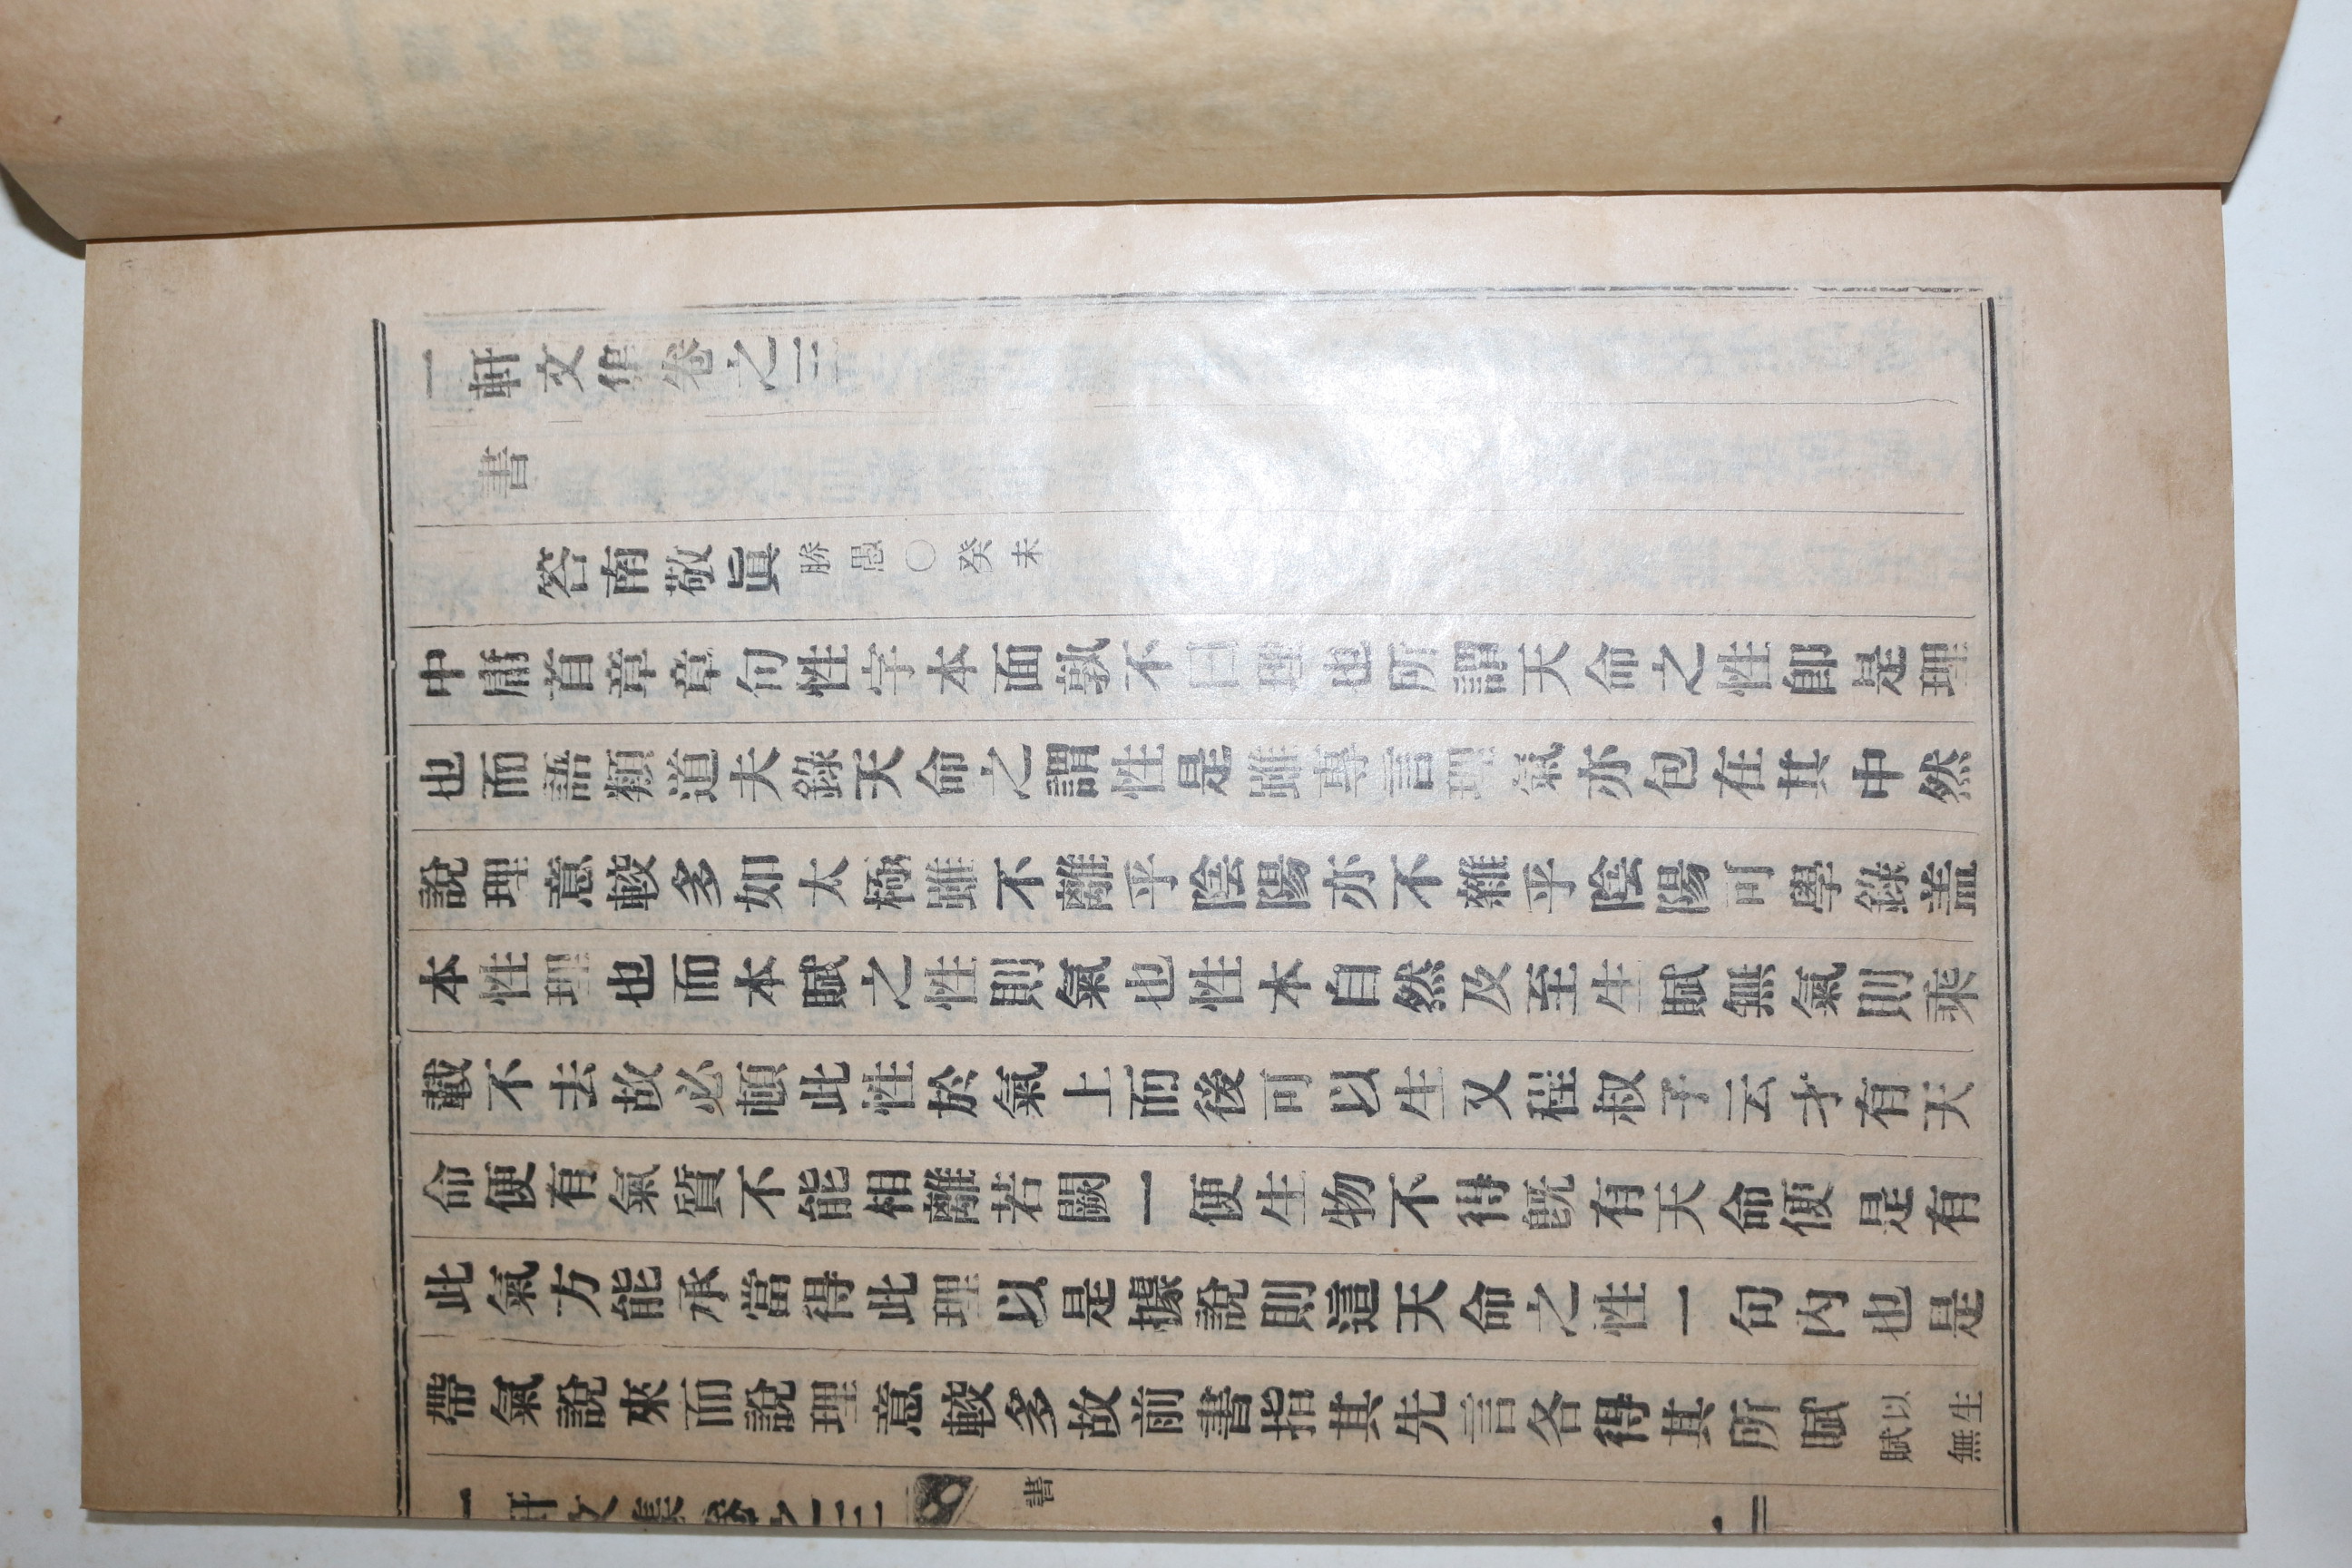 一軒文集卷之三
書
答南敬眞 勝愚○癸未
中庸首章章句性字本面孰不曰理也所謂天命之性卽是理
也而語類道夫錄天命之謂性是雖專言理氣亦包在其中然
說理意較多如太極雖不離乎陰陽亦不雜乎陰陽可學錄盖
本性理也而本賦之性則氣也性本自然及至生賦無氣則乘
載不去故必頓此性於氣上而後可以生又程叔子云才有天
命便有氣質不能相離若闕一便生物不得旣有天命便是有
此氣方能承當得此理以是據說則這天命之性一句內也是
帶氣說來而說理意較多故前書指其先言各得其所賦 以生賦無
一軒文集卷之三 書 一